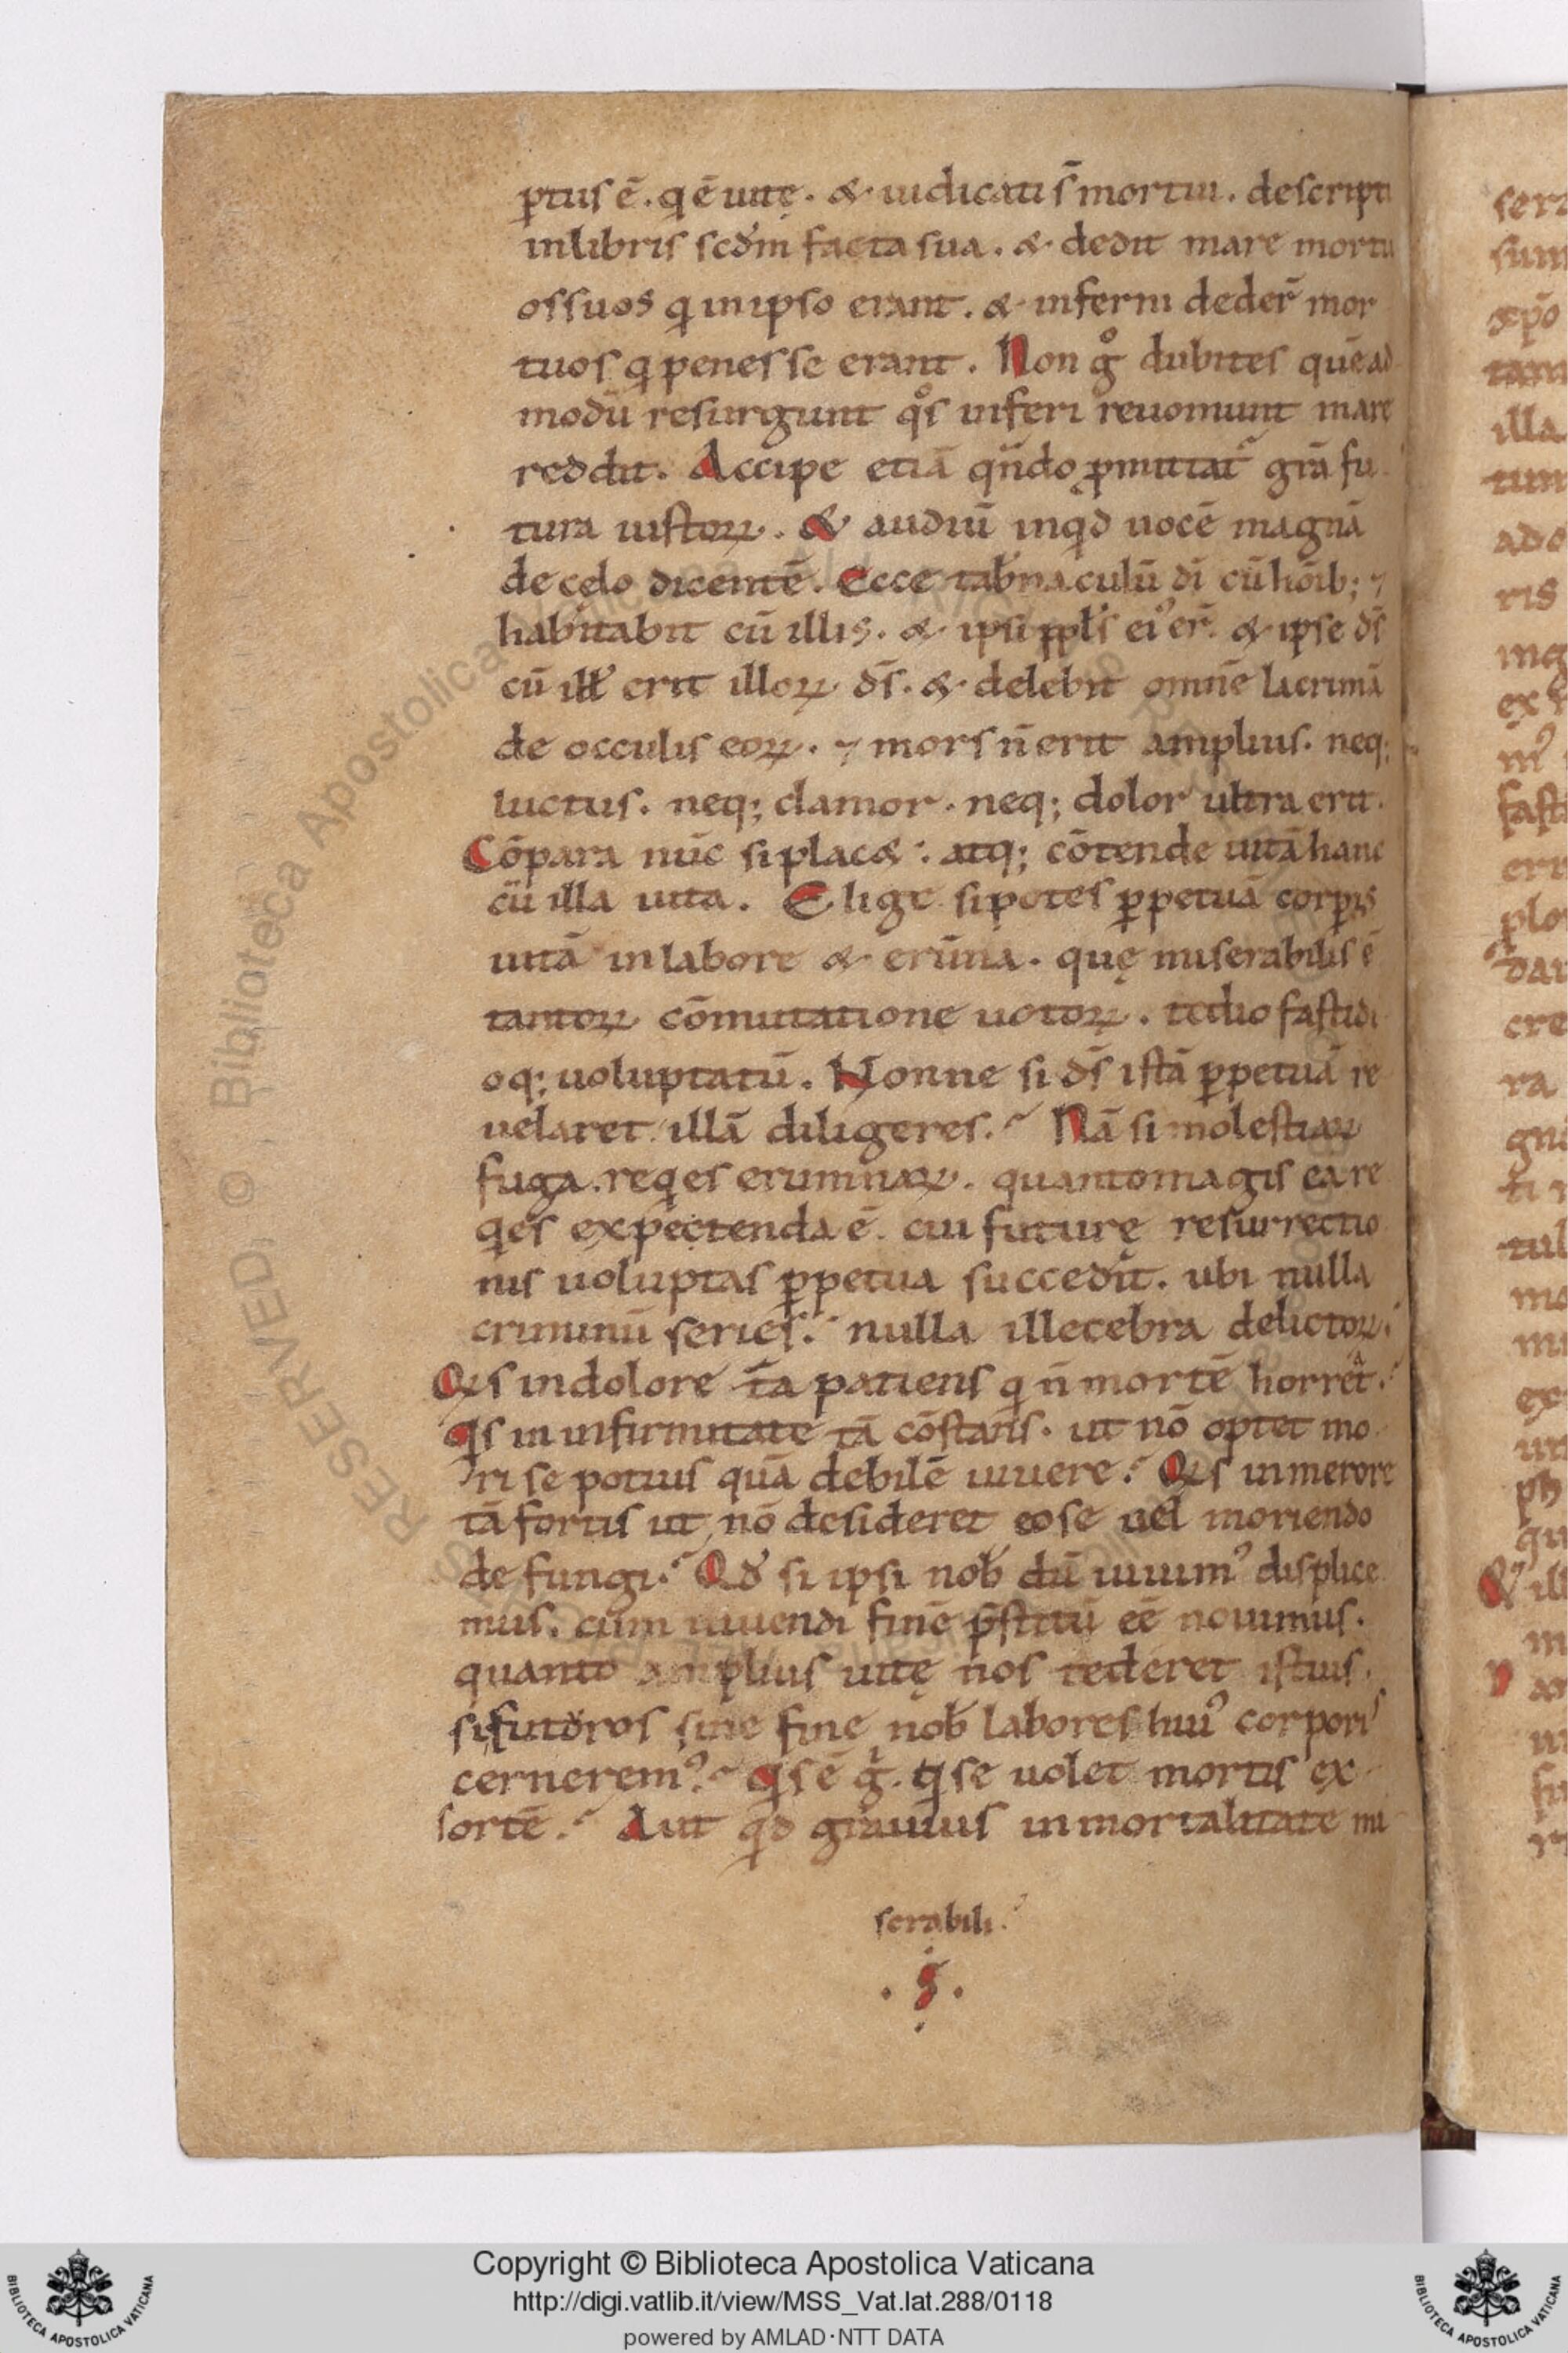 ptus ē. q ē uitę. & iudicati s̄ mortui. descripti
in libris scd̄m facta sua. & dedit mare mortu
os suos q in ipso erant. & inferni deder̄ mor
tuos q penes se erant. Non gͦ dubites quēad
modū resurgunt qͦs inferi reuomunt mare
reddit. Accipe etiā qn̄do ꝓmittat̄ gr̄a fu
tura iustoꝝ. & audiui inqd uocē magnā
de cęlo dicentē. Ecce tab̄naculū dī cū hoīb; ⁊
habitabit cū illis. & ipsi ppl̄s eiꝰ er̄. & ipse ds̄
cū ill̄ erit illoꝝ ds̄. & delebit omnē lacrimā
de occulis eoꝝ. ⁊ mors n̄ erit amplius. neq;
luctus. neq; clamor. neq; dolor ultra erit.
Cōpara nūc si plac&. atq; cōtende uitā hanc
cū illa uita. Elige si potes ꝑpetuā corꝑis
uitā in labore & erūna. quę miserabilis ē
tantoꝝ cōmutatione uotoꝝ. tedio fastidi
oq; uoluptatū. Nonne si ds̄ istā ꝑpetuā re
uelaret illā diligeres. Nā si molestiaꝝ
fuga. reqes erumnaꝝ. quanto magis ea re
qes expectenda ē. cui futurę resurrectio
nis uoluptas ꝑpetua succedit. ubi nulla
criminū series. nulla illecebra delictoꝝ.
Qis in dolore ta patiens q n̄ mortē horreat.
Qis in infirmitate tā cōstans. ut nō optet mo
ri se potius quā debilē uiuere. Qis in merore
tā fortis ut nō desideret eo se uel moriendo
de fungi. Qd si ipsi nob̄ dū uiuimꝰ displice
mus. cum uiuendi finē p̄stitū eē nouimus.
quanto amplius uitę nos tederet istius.
si futuros sine fine nob̄ labores huiꝰ corporis
cerneremꝰ. Qis ē g. qi se uolet mortis ex
sortē. Aut qd grauius inmortalitate mi
serabili.
RESERVED. © Biblioteca Apostolica Vaticana
Copyright © Biblioteca Apostolica Vaticana
http://digi.vatlib.it/view/MSS_Vat.lat.288/0118
powered by AMLAD·NTT DATA
BIBLIOTECA APOSTOLICA VATICANA
BIBLIOTECA APOSTOLICA VATICANA